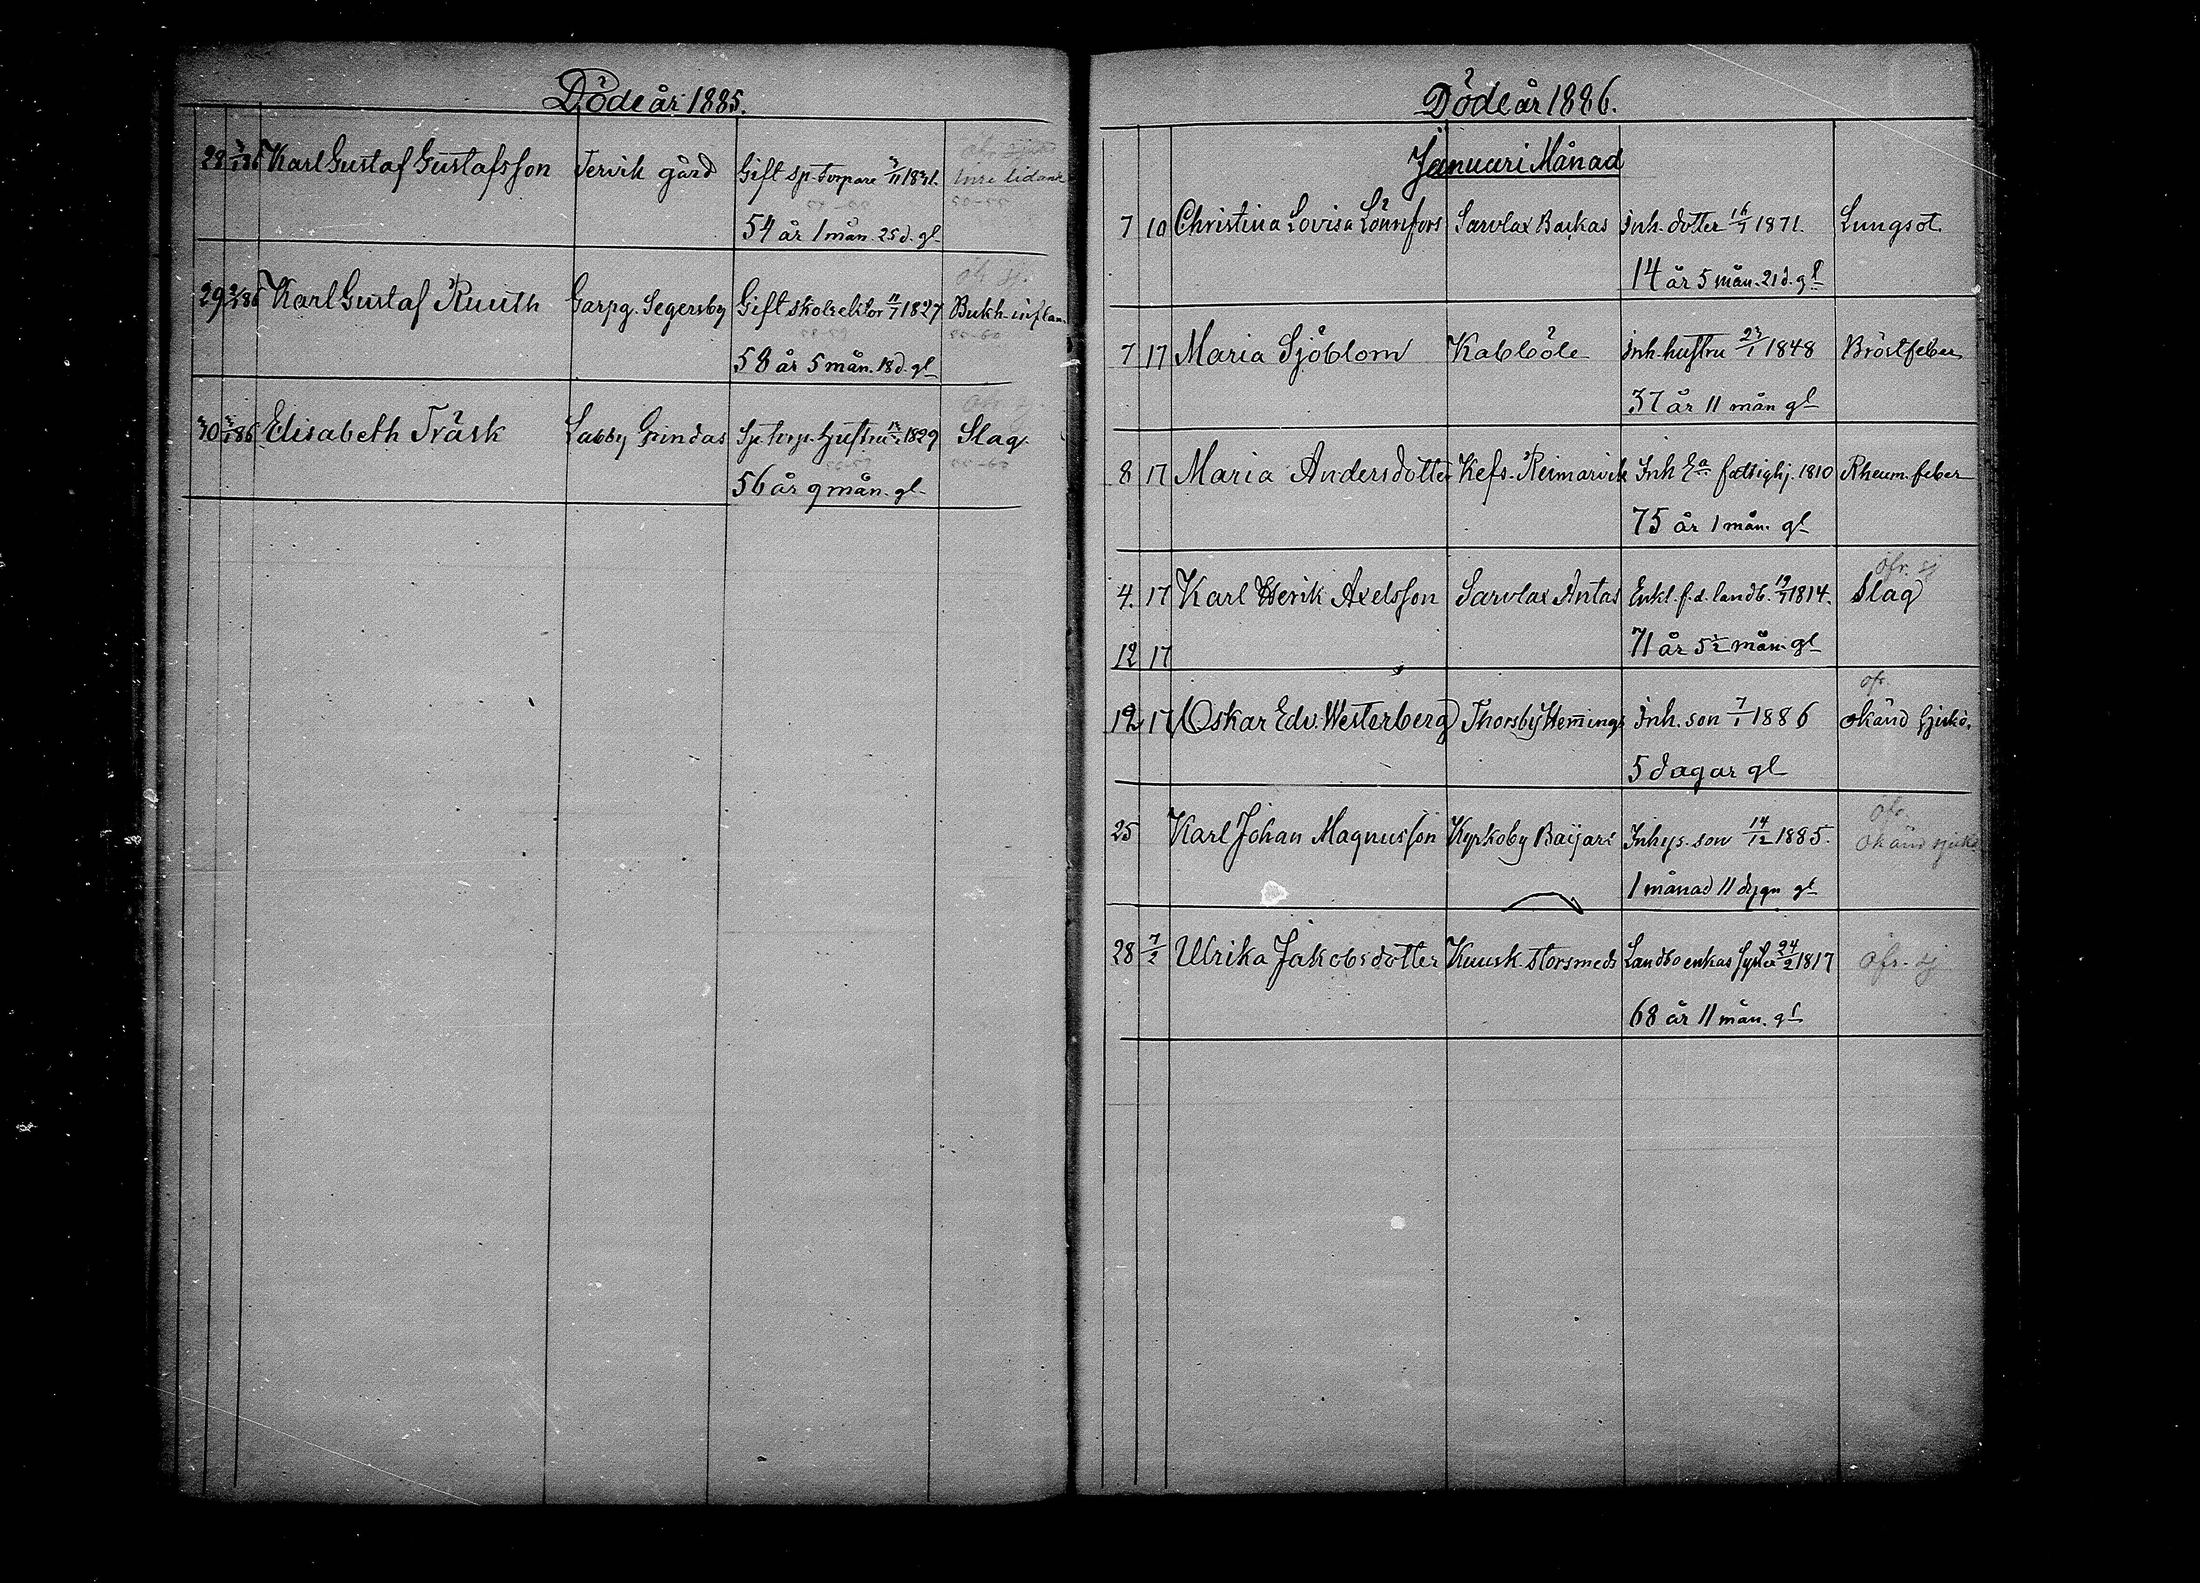 Döde år 1885.
28 3/1 86 Karl Gustaf Gustafsson Tervik gård Gift sp. torpare 3/11 1831. Inre lidande
54 år 1 mån. 25 d. gl
29 2/1 86 Karl Gustaf Ruuth Garpg. Segersby Gift skolrektor 11/7 1827 Bukh. inflam.
58 år 5 mån. 18 d. gl
30 3/1 86 Elisabeth Träsk Labby Grindas Sp. torp. hustru 1829 Slag.
56 år 9 mån. gl.
Döde år 1886.
Januari Månad
7 10 Christina Lovisa Lönnfors Sarvlax Backas Inh. dotter 16/7 1871. Lungsot.
14 år 5 mån. 21 d. gl
7 17 Maria Sjöblom Kabböle Inh. hustru 23/1 1848 Bröstfeber
37 år 11 mån gl
8 17 Maria Andersdotter Kefs. Reimarvik Inh Ea fattighj. 1810 Rheum. feber
75 år 1 mån. gl
ofr. sj
4. 17 Karl Henrik Axelsson Sarvlax Antas Enkl. f.d. landb. 19/7 1814. Slag
12 17 71 år 5 1/2 mån. gl
ofr.
12 17 Oskar Edv. Westerberg Thorsby Hemings Inh. son 7/1 1886 okänd sjukd.
5 dagar gl
ofr.
25 Karl Johan Magnusson Kyrkoby Baijars Inhys. son 14/12 1885. okänd sjukd
1 månad 11 dygn gl
28 7/2 Ulrika Jakobsdotter Kuusk. Storsmeds Landbo enkas syster 24/2 1817 ofr. sj
68 år 11 mån. gl